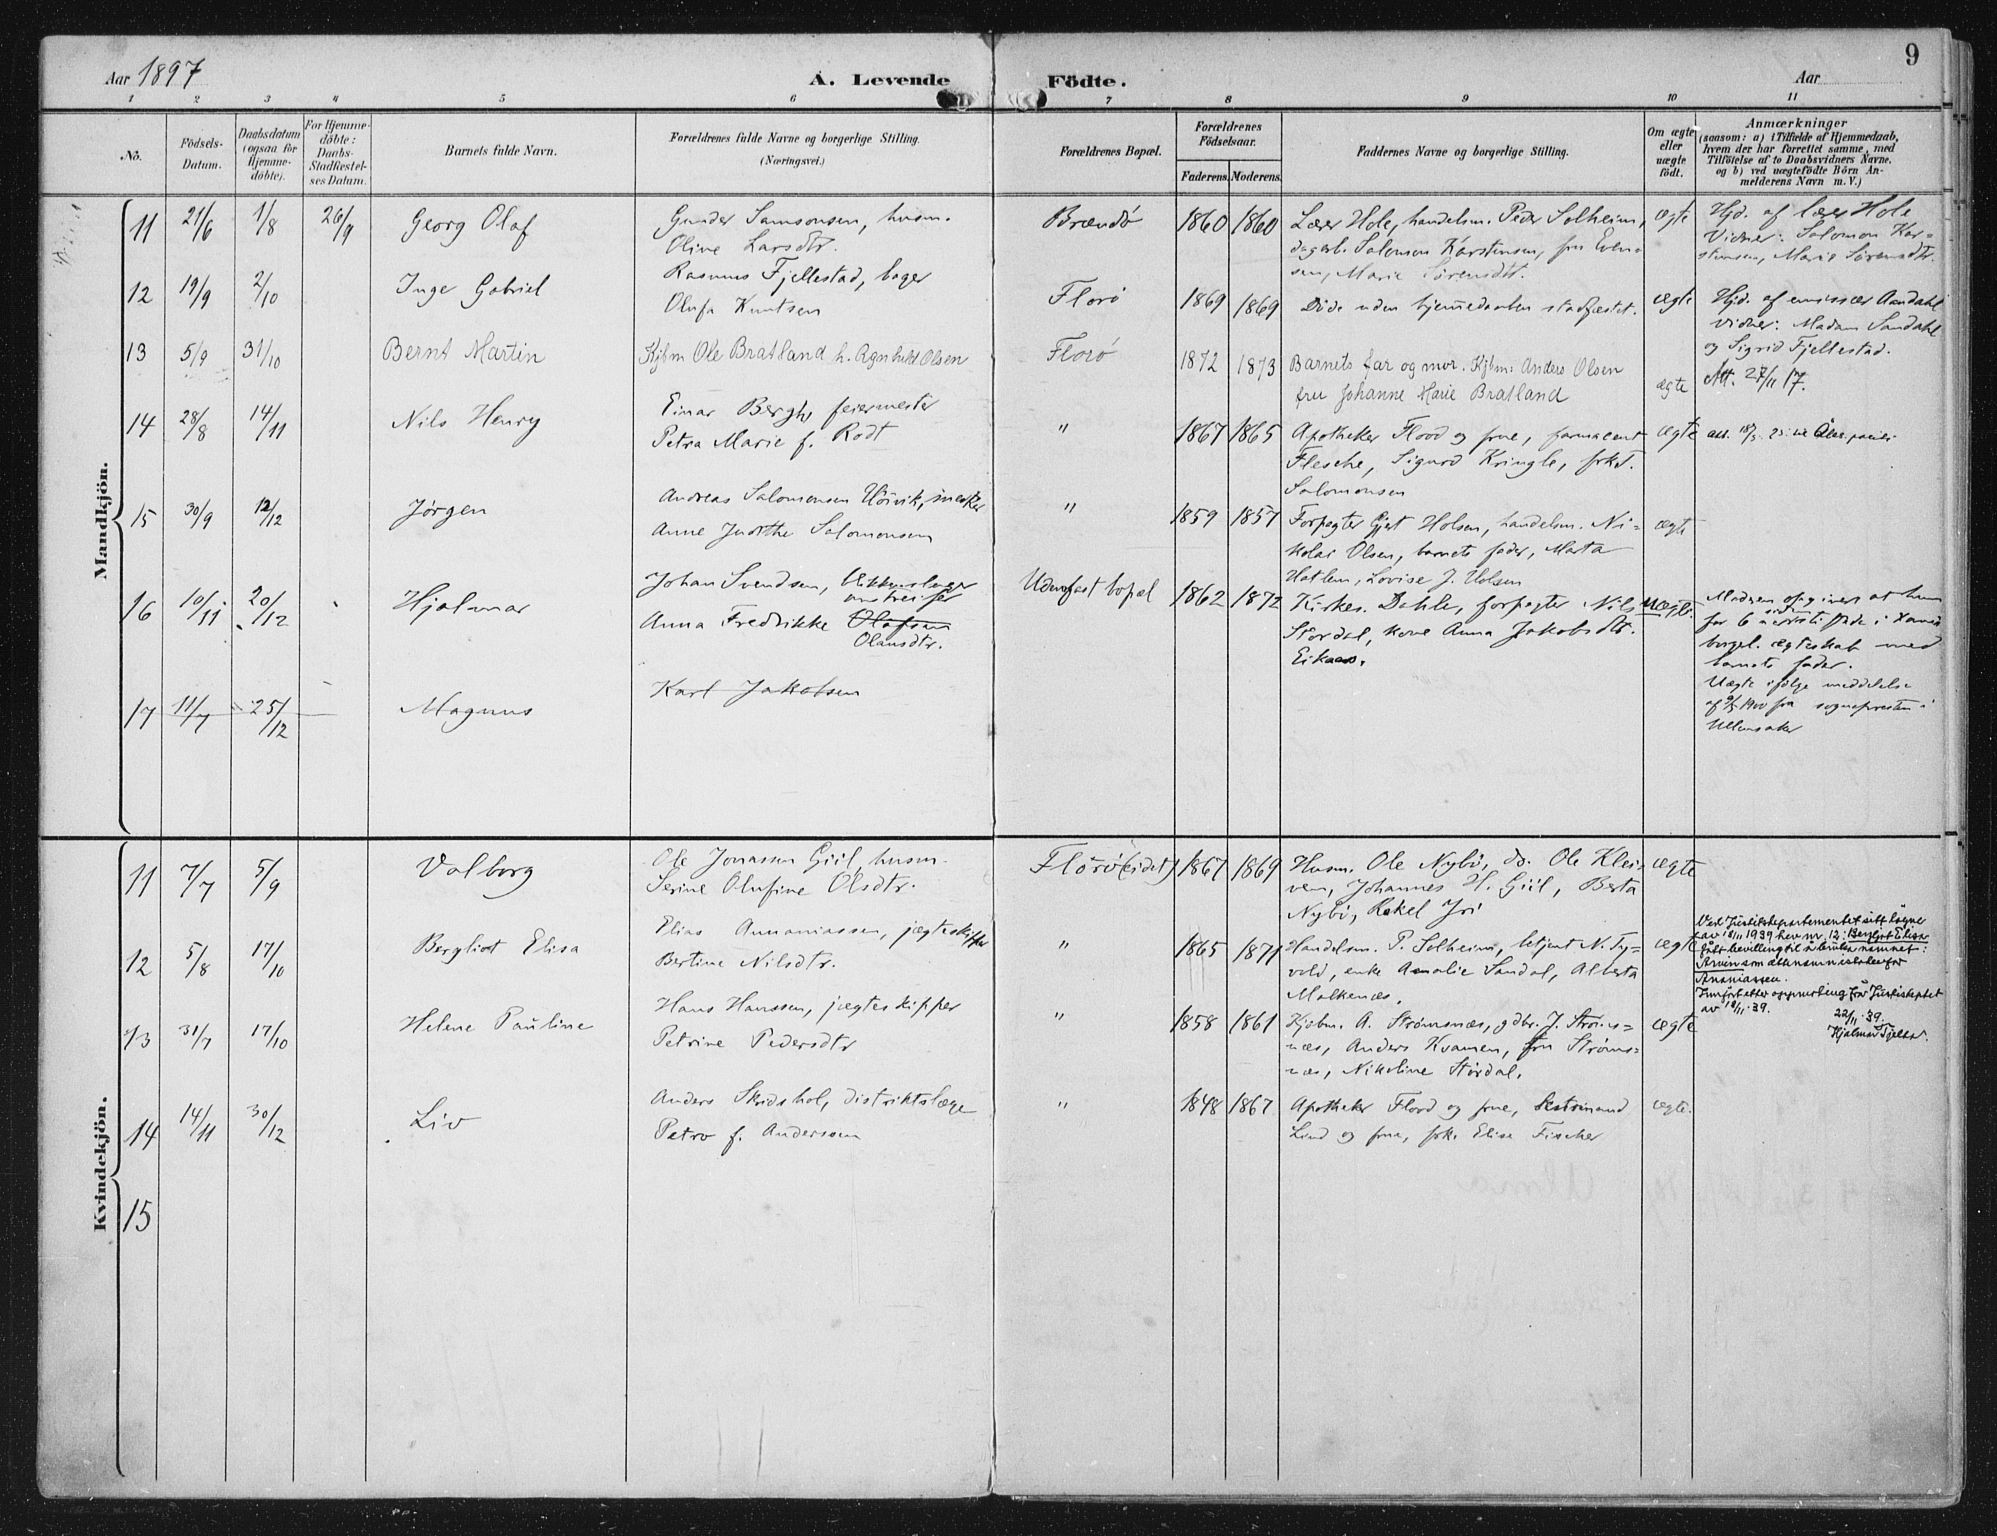 Aar 1897
A. Levende
Födte.
Aar
9
1 2 3 4 5 6 7 8 9 10 11
No.
Födsels-
Datum.
Daabsdatum
(ogsaa for
Hjemme-
döbte).
For Hjemme-
döbte:
Daabs-
Stadfæstel-
ses Datum.
Barnets fulde Navn.
Forældrenes fulde Navne og borgerlige Stilling.
(Næringsvei.)
Forældrenes Bopæl.
Forældrenes
Födselsaar.
Faderens. Moderens.
Faddernes Navne og borgerlige Stilling.
Om ægte
eller
uægte
födt.
Anmærkninger
(saasom: a) i Tilfælde af Hjemmedaab,
hvem der har forrettet samme, med
Tilföielse af to Daabsvidners Navne,
og b) ved uægtefödte Börn An-
melderens Navn m. V.)
Mandkjön.
11 21/6 1/8 26/9 Georg Olaf
Gunder Samsonsen, husm.
Olive Larsdtr.
Brændø 1860 1860
Lærer Hole, handelsm. Peder Solheim,
dagarb. Salomon Karstensen, fru Even-
sen, Marie Sørensdtr.
ægte
Hjd. af lærer Hole
Vidner: Salomon Kar-
stensen, Marie Sørensdtr.
12 19/9 2/10 Inge Gabriel
Rasmus Fjellestad, bager
Olufa Knutsen
Florø 1869 1869
Døde uden hjemmedaaben stadfæstet.
ægte
Hjd. af emissær Aandahl
Vidner: Madam Sandahl
og Sigrid Fjellestad.
13 5/9 31/10 Bernt Martin
Kjbm Ole Bratland h. Agnhild Olsen
Florø 1872 1873
Barnets far og mor. Kjbm: Anders Olsen
fru Johanne Marie Bratland
ægte
Att. 27/11 17.
14 28/8 14/11 Nils Henry
Einar Bergh, feiermester
Petra Marie f. Rodt
" 1867 1865
Apotheker Flood og frue, farmaceut
Flesche, Sigurd Kringle, frk.
Salomonsen
ægte
15 30/9 12/12 Jørgen
Andreas Salomonsen
Anne Judithe Salomonsen
" 1859 1857
Forpagter Gjert Holsen, handelsm. Ni-
kolai Olsen, barnets fader, Marta
Hatlem, Lovise J. Holsen
ægte
16 10/11 20/12 Hjalmar
Johan Svendsen, blikkenslager
Anna Fredrikke Olafsen
Olausdtr.
Uden fast bopæl 1862 1872
Kirkes. Dahle, forpagter Nils
Stordal, kone Anna Jakobsdtr.
Eikaas.
Uægte.
Moderen opgivers at hun
for 6 siden
borgel. ægteskab med
barnets fader.
Uægte ifølge meddelelse
1900 fra sognepresten i
Ullensaker
17 11/7 25/12 Magnus
Karl Jakobsen
Kvindekjön.
11 7/7 5/9 Valborg
Ole Jonassen Giil, husm.
Serine Olufine Olsdtr.
Florø(eidet) 1867 1869
Husm. Ole Nybø, do. Ole Klei-
ven, Johannes H. Giil, Berta
Nybø, Rakel
ægte
12 5/8 17/10 Bergliot Elisa
Elias Annaniassen, jægteskipper
Bertine Nilsdtr.
" 1865 1871
Handelsm. P. Solheim, betjent N. Ty-
vold, enke Amalie Sandal, Alberta
Malkenæs.
ægte
Ved Justisdepartementet sitt
av 18/11 1939 hev nr. 12: Bergliot Elisa
fått bevilling til å bruka namnet:
Ananiassen.
Innført etter oppmoding frå Justisdeptet
av 18/11.39.
22/11.39.
13 31/7 17/10 Helene Pauline
Hans Hanssen, jægteskipper
Petrine Pedersdtr
" 1858 1861
Kjøbm. A. Strømsnæs, gdbr. J. Strøms-
næs, Anders Kvamen, fru Strøms-
næs, Nikoline Stordal.
ægte
14 14/11 30/12 Liv
Anders Skridshol, distriktslæge
Petro f. Anderssen
" 1848 1867
Apotheker Flood og frue,
Lind og frue, frk. Elise Fischer
ægte.
15